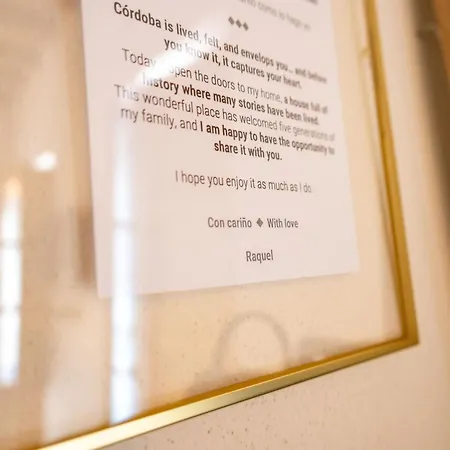 como lo hago yo
Córdoba is lived, felt, and envelops you... and before
you know it, it captures your heart.
Today I open the doors to my home, a house full of
history where many stories have been lived.
This wonderful place has welcomed five generations of
my family, and I am happy to have the opportunity to
share it with you.
I hope you enjoy it as much as I do.
Con cariño ◆ With love
Raquel